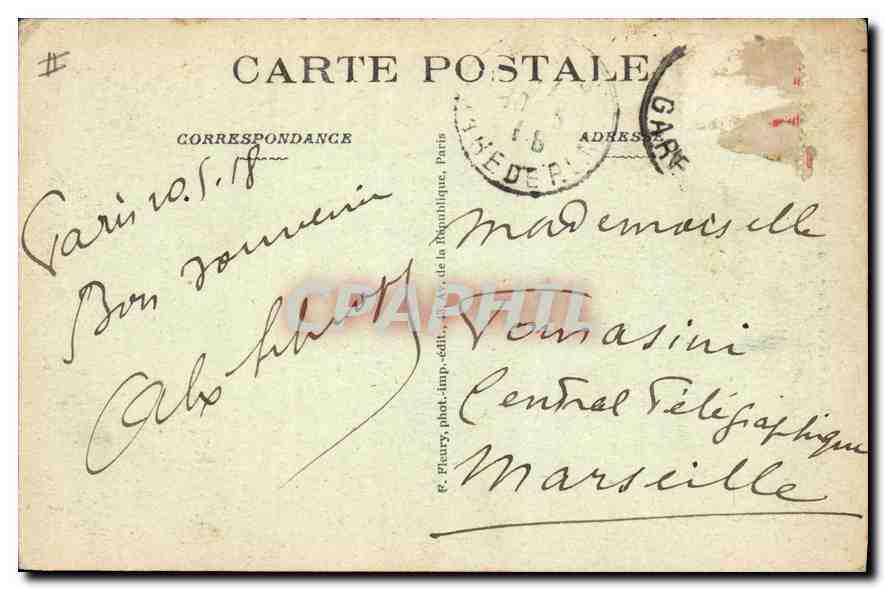 CARTE POSTALE
CORRESPONDANCE
ADRESSE
GARE
Paris 10.5.18
Bon souvenir
Alex
F. Fleury, phot.-imp.-édit., Av. de la République, Paris
Mademoiselle
Tomasini
Central Télégraphique
Marseille
CPAPHIL